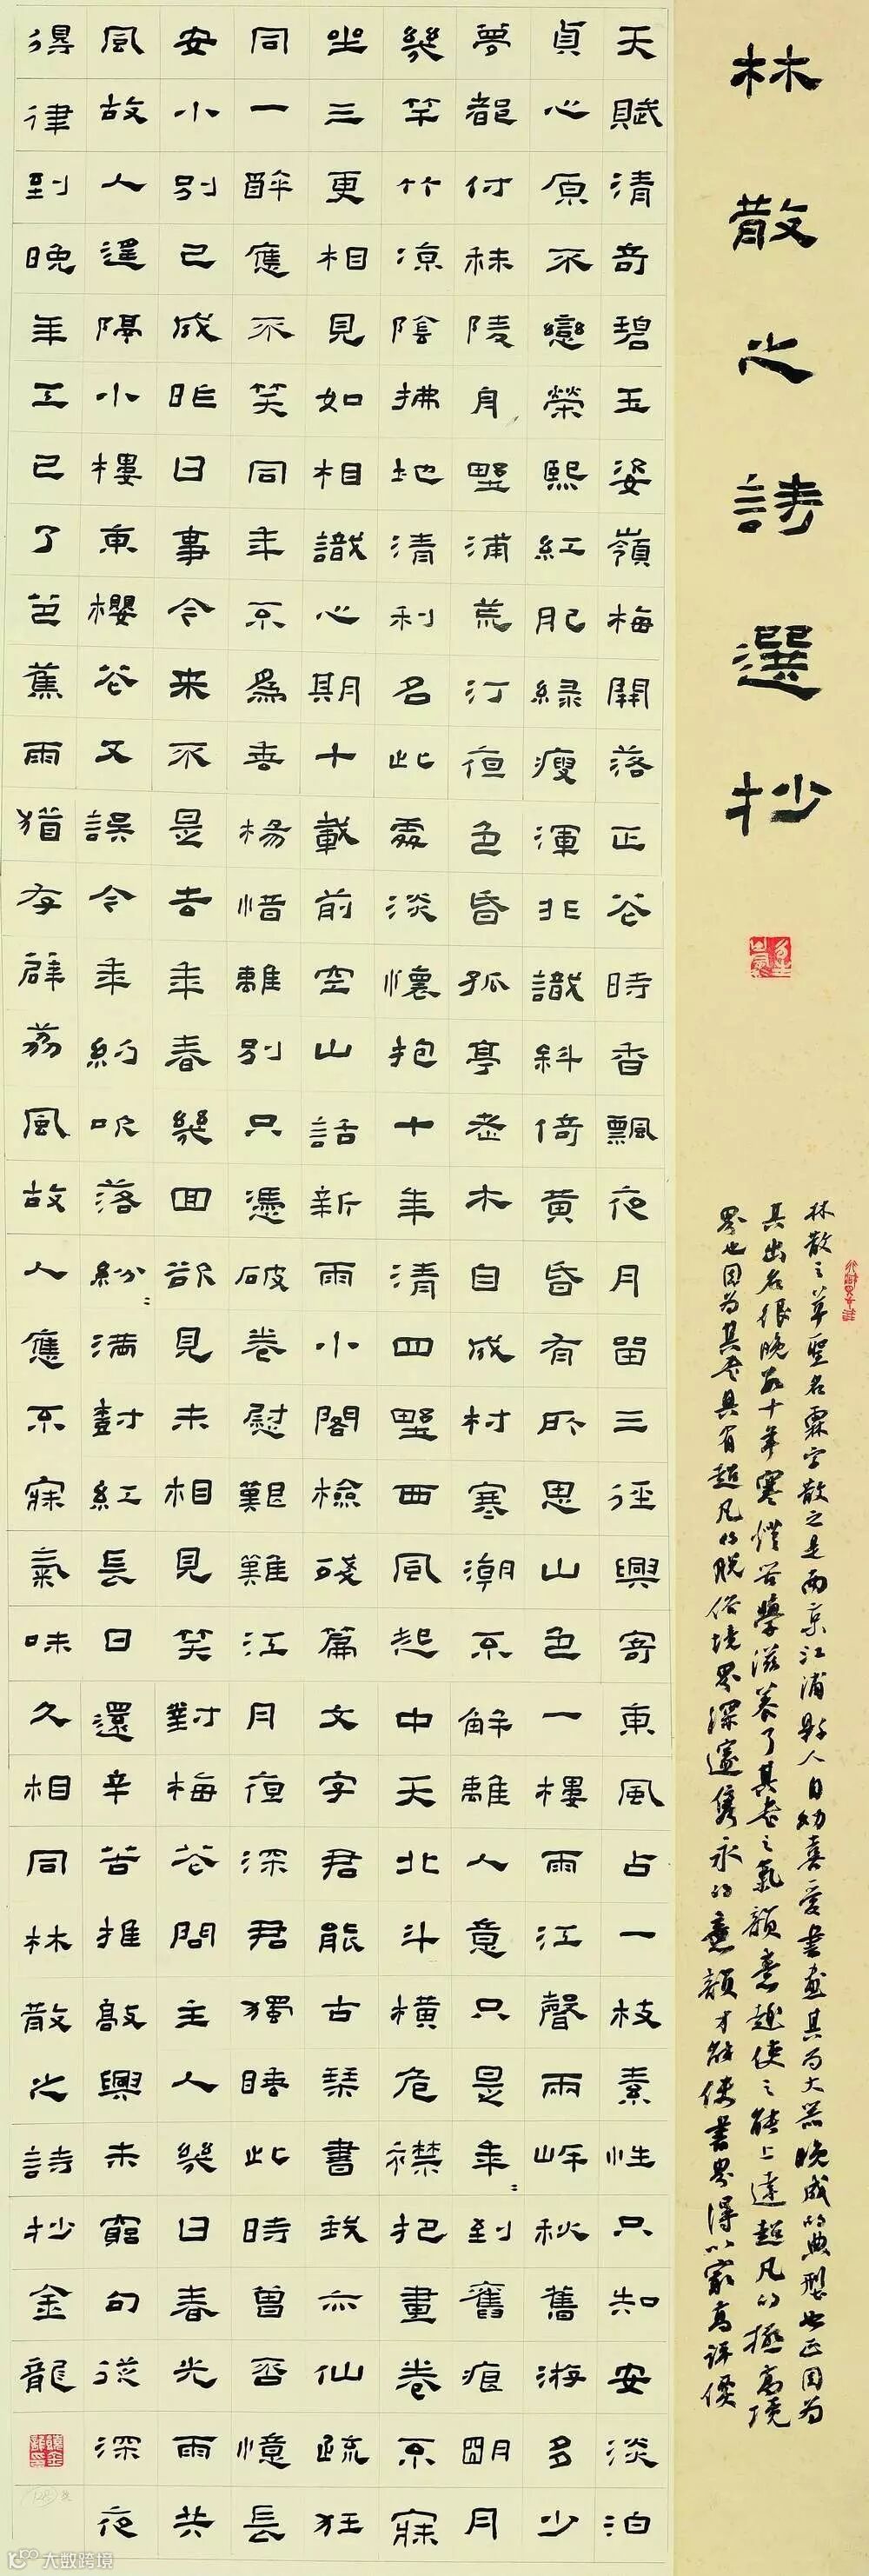 林散之詩選抄
林散之草聖名霖字散之是南京江浦縣人自幼喜爱書画其为大器晚成的典型也正因为
其出名很晚数十年寒灯苦學滋养了其書之氣韻意趣使之能上達超凡的極高境
界也因为其書具有超凡的脱俗境界深邃隽永的意韻才能使書界得以最高評價
天賦清奇碧玉姿嶺梅開落正花時香飄夜月留三徑興寄東風占一枝素性只知安淡泊
貞心原不戀榮熙紅肥綠瘦渾非識斜倚黃昏有所思山色一樓雨江聲兩岸秋舊游多少
夢都付秣陵舟野浦荒汀夜色昏孤亭老木自成村寒潮不解離人意只是年=到舊痕明月
幾竿竹涼陰拂地清利名此處淡懷抱十年清四野西風起中天北斗橫危襟把畫卷不寐
坐三更相見如相識心期十載前空山話新雨小閣檢殘篇文字君能古琹書我亦仙疏狂
同一醉應不笑同年不為垂楊惜離別只憑破卷慰艱難江月夜深君獨睡此時曾否憶長
安小別已成昨日事今來不是去年春幾回欲見未相見笑對梅花問主人幾日春光雨共
風故人遥隔小樓東櫻花又誤今年約吹落紛=滿樹紅長日還辛苦推敲興未窮句從深夜
得律到晚年工已了芭蕉雨猶存薜荔風故人應不寐氣味久相同林散之詩抄金龍
大數跨境